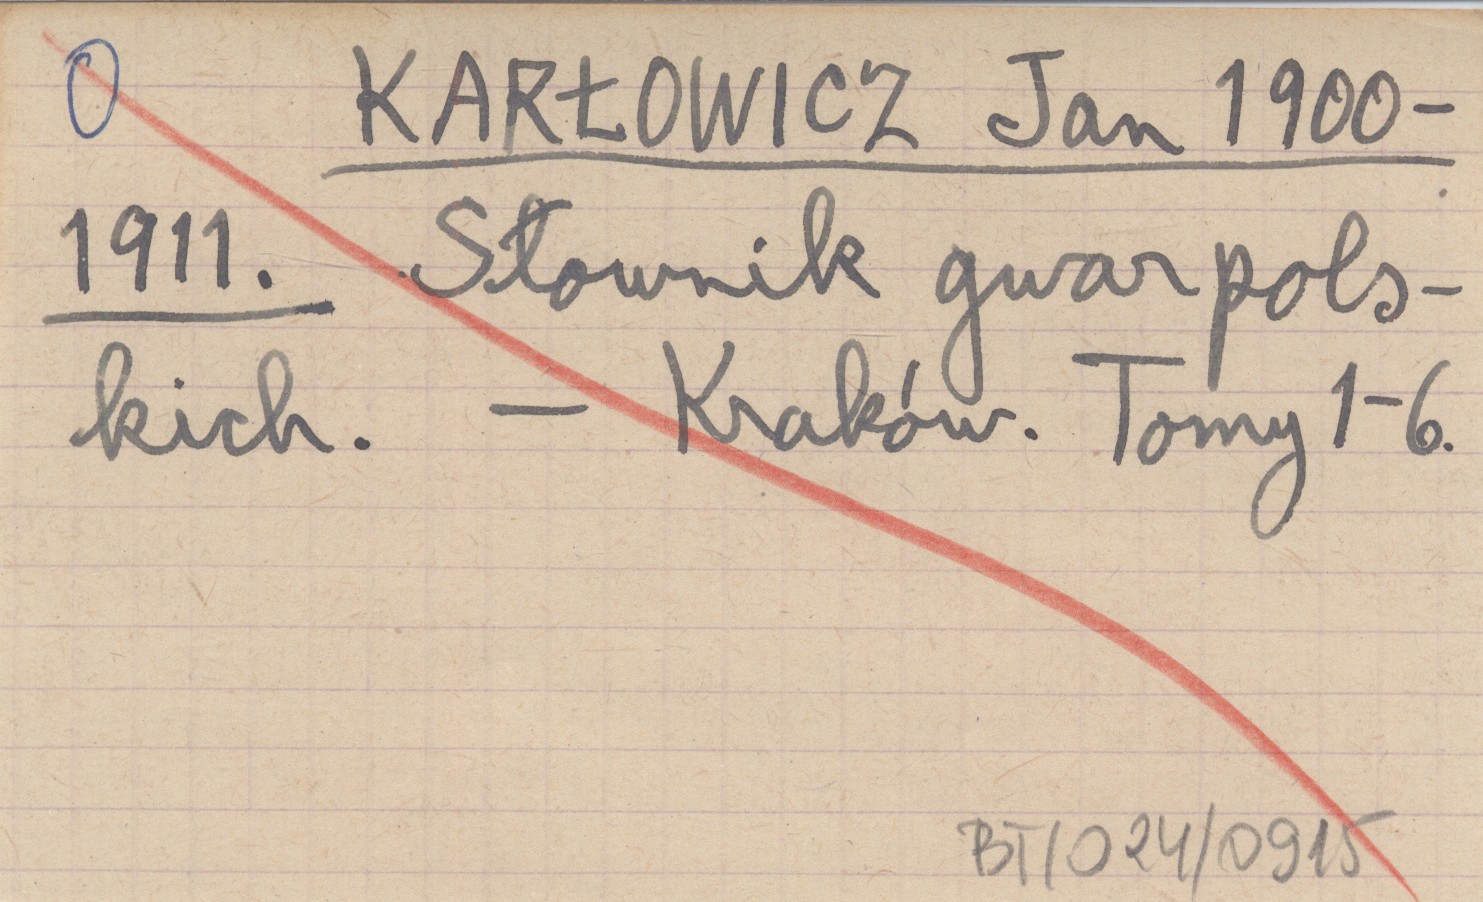 0 KARŁOWICZ Jan 1900-
1911. Słownik gwar pols-
kich. — Kraków. Tomy 1-6.
BT/024/0915